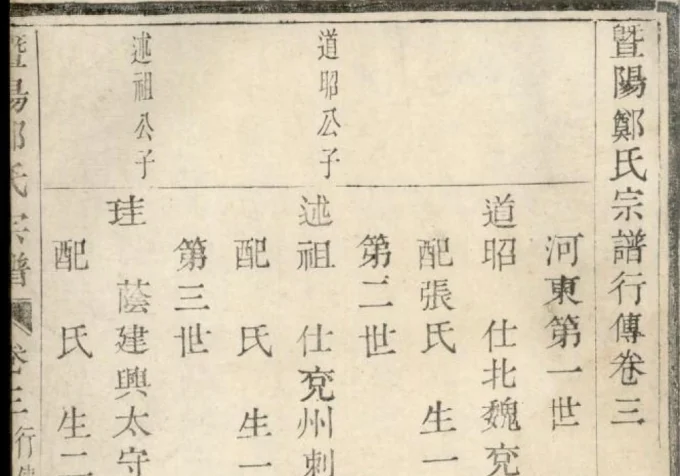 暨陽鄭氏宗譜行傳卷三
河東第一世
道昭 仕北魏兗
配張氏 生一
第二世
道昭公子
述祖 仕兗州刺
配 氏 生一
第三世
述祖公子
珪 蔭建興太守
配 氏 生二
暨陽鄭氏宗譜 卷三 行傳